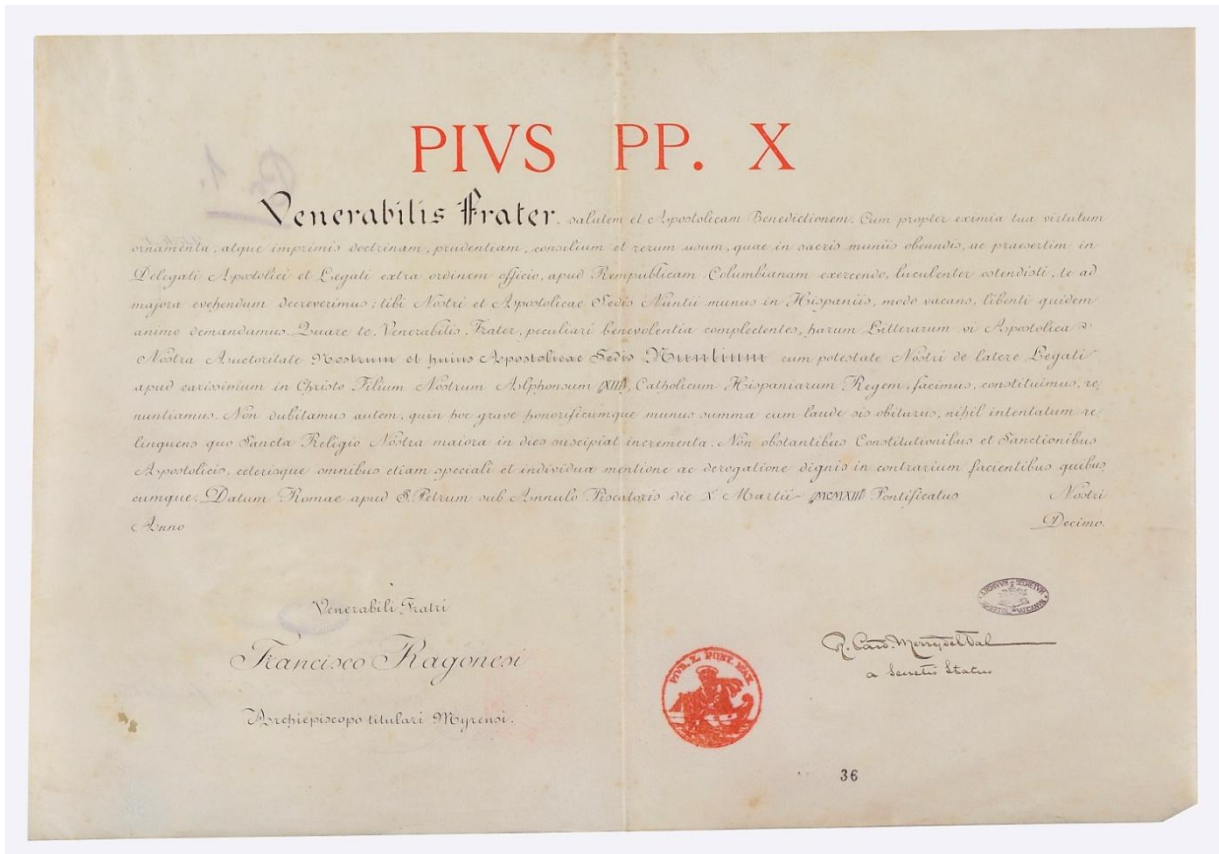 PIVS PP. X
Venerabilis Frater, salutem et Apostolicam Benedictionem. Cum propter eximia tua virtutum
ornamenta, atque imprimis doctrinam, prudentiam, consilium et rerum usum, quae in sacris muniis obeundis, ac praesertim in
Delegati Apostolici et Legati extra ordinem officio, apud Rempublicam Columbianam exercendo, luculenter ostendisti, te ad
majora evehendum decreverimus; tibi Nostri et Apostolicae Sedis Nuntii munus in Hispaniis, modo vacans, libenti quidem
animo demandamus. Quare te, Venerabilis Frater, peculiari benevolentia complectentes, harum Litterarum vi Apostolica
Nostra Auctoritate Nostrum et huius Apostolicae Sedis Nuntium cum potestate Nostri de latere Legati
apud carissimum in Christo Filium Nostrum Alphonsum XIII, Catholicum Hispaniarum Regem, facimus, constituimus, re
nuntiamus. Non dubitamus autem, quin hoc grave honorificumque munus summa cum laude sis obiturus, nihil intentatum re
linquens quo Sancta Religio Nostra maiora in dies suscipiat incrementa. Non obstantibus Constitutionibus et Sanctionibus
Apostolicis, ceterisque omnibus etiam speciali et individua mentione ac derogatione dignis in contrarium facientibus quibus
cumque. Datum Romae apud S. Petrum sub Annulo Piscatoris die X Martii MCMXIII Pontificatus Nostri
Anno Decimo.
Venerabili Fratri
Francisco Ragonesi
Archiepiscopo titulari Myrensi.
R. Card. Merry del Val
a Secretis Status
PIVS. X. PONT. MAX
36